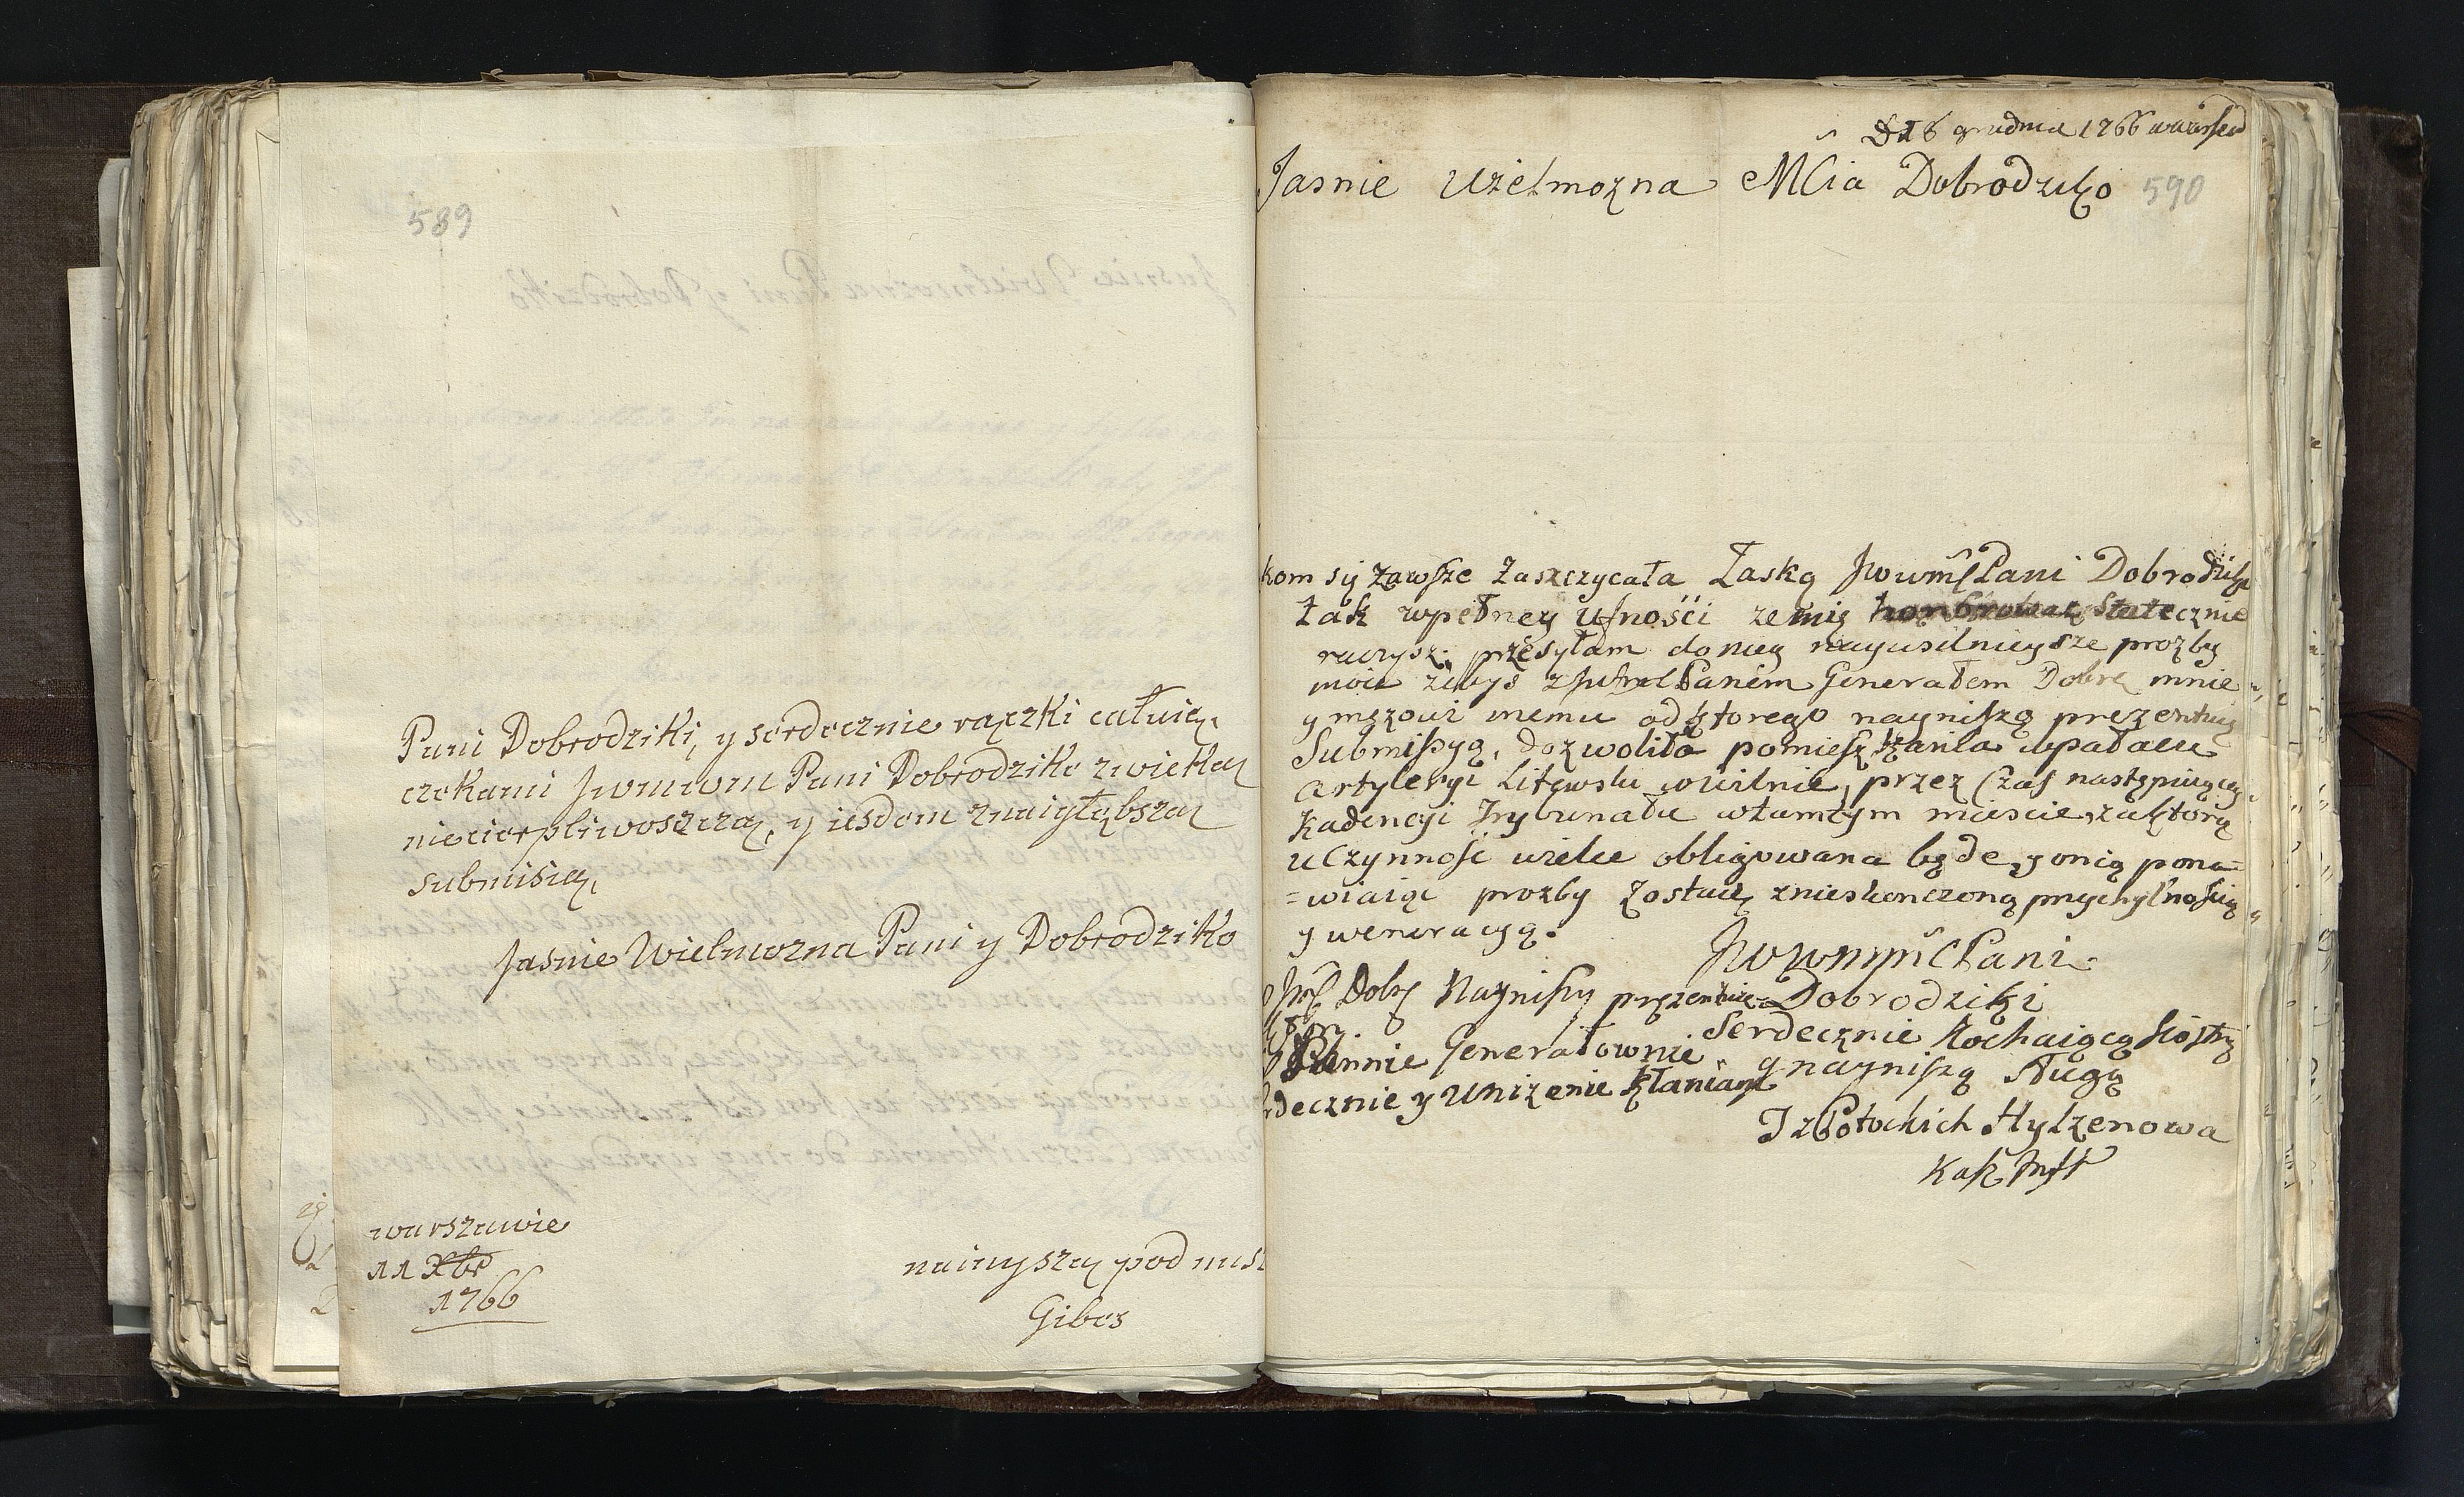 589
Pani Dobrodziki, y serdecznie rączki całuię,
czekami Jwmwm Pani Dobrodziki zwielką
niecierpliwoszczą, y iesdem znaigłębszą
submisią,
Jasnie Wielmozna Pani y Dobrodziko
warszawie
11 Xbr
1766
nainyszą pod
Gibes
D 16 grudnia 1766 wwarsew
Jasnie Wielmozna MCia Dobrodziko 590
kom się zawsze zaszczycała Łaską Jwwmę Pani Dobrodziki
tak wpełney Ufności ze mię statecznie
raczysz; przesyłam do niey nayusilnieysze prozby
moie zebys z Panem Generałem Dobrę mnie
y męzowi memu od ktorego nayniszą prezentuię
Submissyą, dozwoliła pomieszkania wpałacu
Artyleryi Litewsku wwilnie, przez Czas następuiącey
Kadencyi Trybunału wtamtym miescie, za ktorą
Uczynnosc wielce obligowana będe, y onią pona=
=wiaiąc prozby zostaię znieskonczoną przychylnoscią
y weneracyą.
Jwwmmść Pani
Dobrodziki
Serdecznie Kochaiącą Siostrą
y nayniszą sługą
Dobrę Nayniszy prezentuię
Pannie Generałownie
decznie y Unizenie kłaniam
J z Potockich Hylzenowa
Kasz